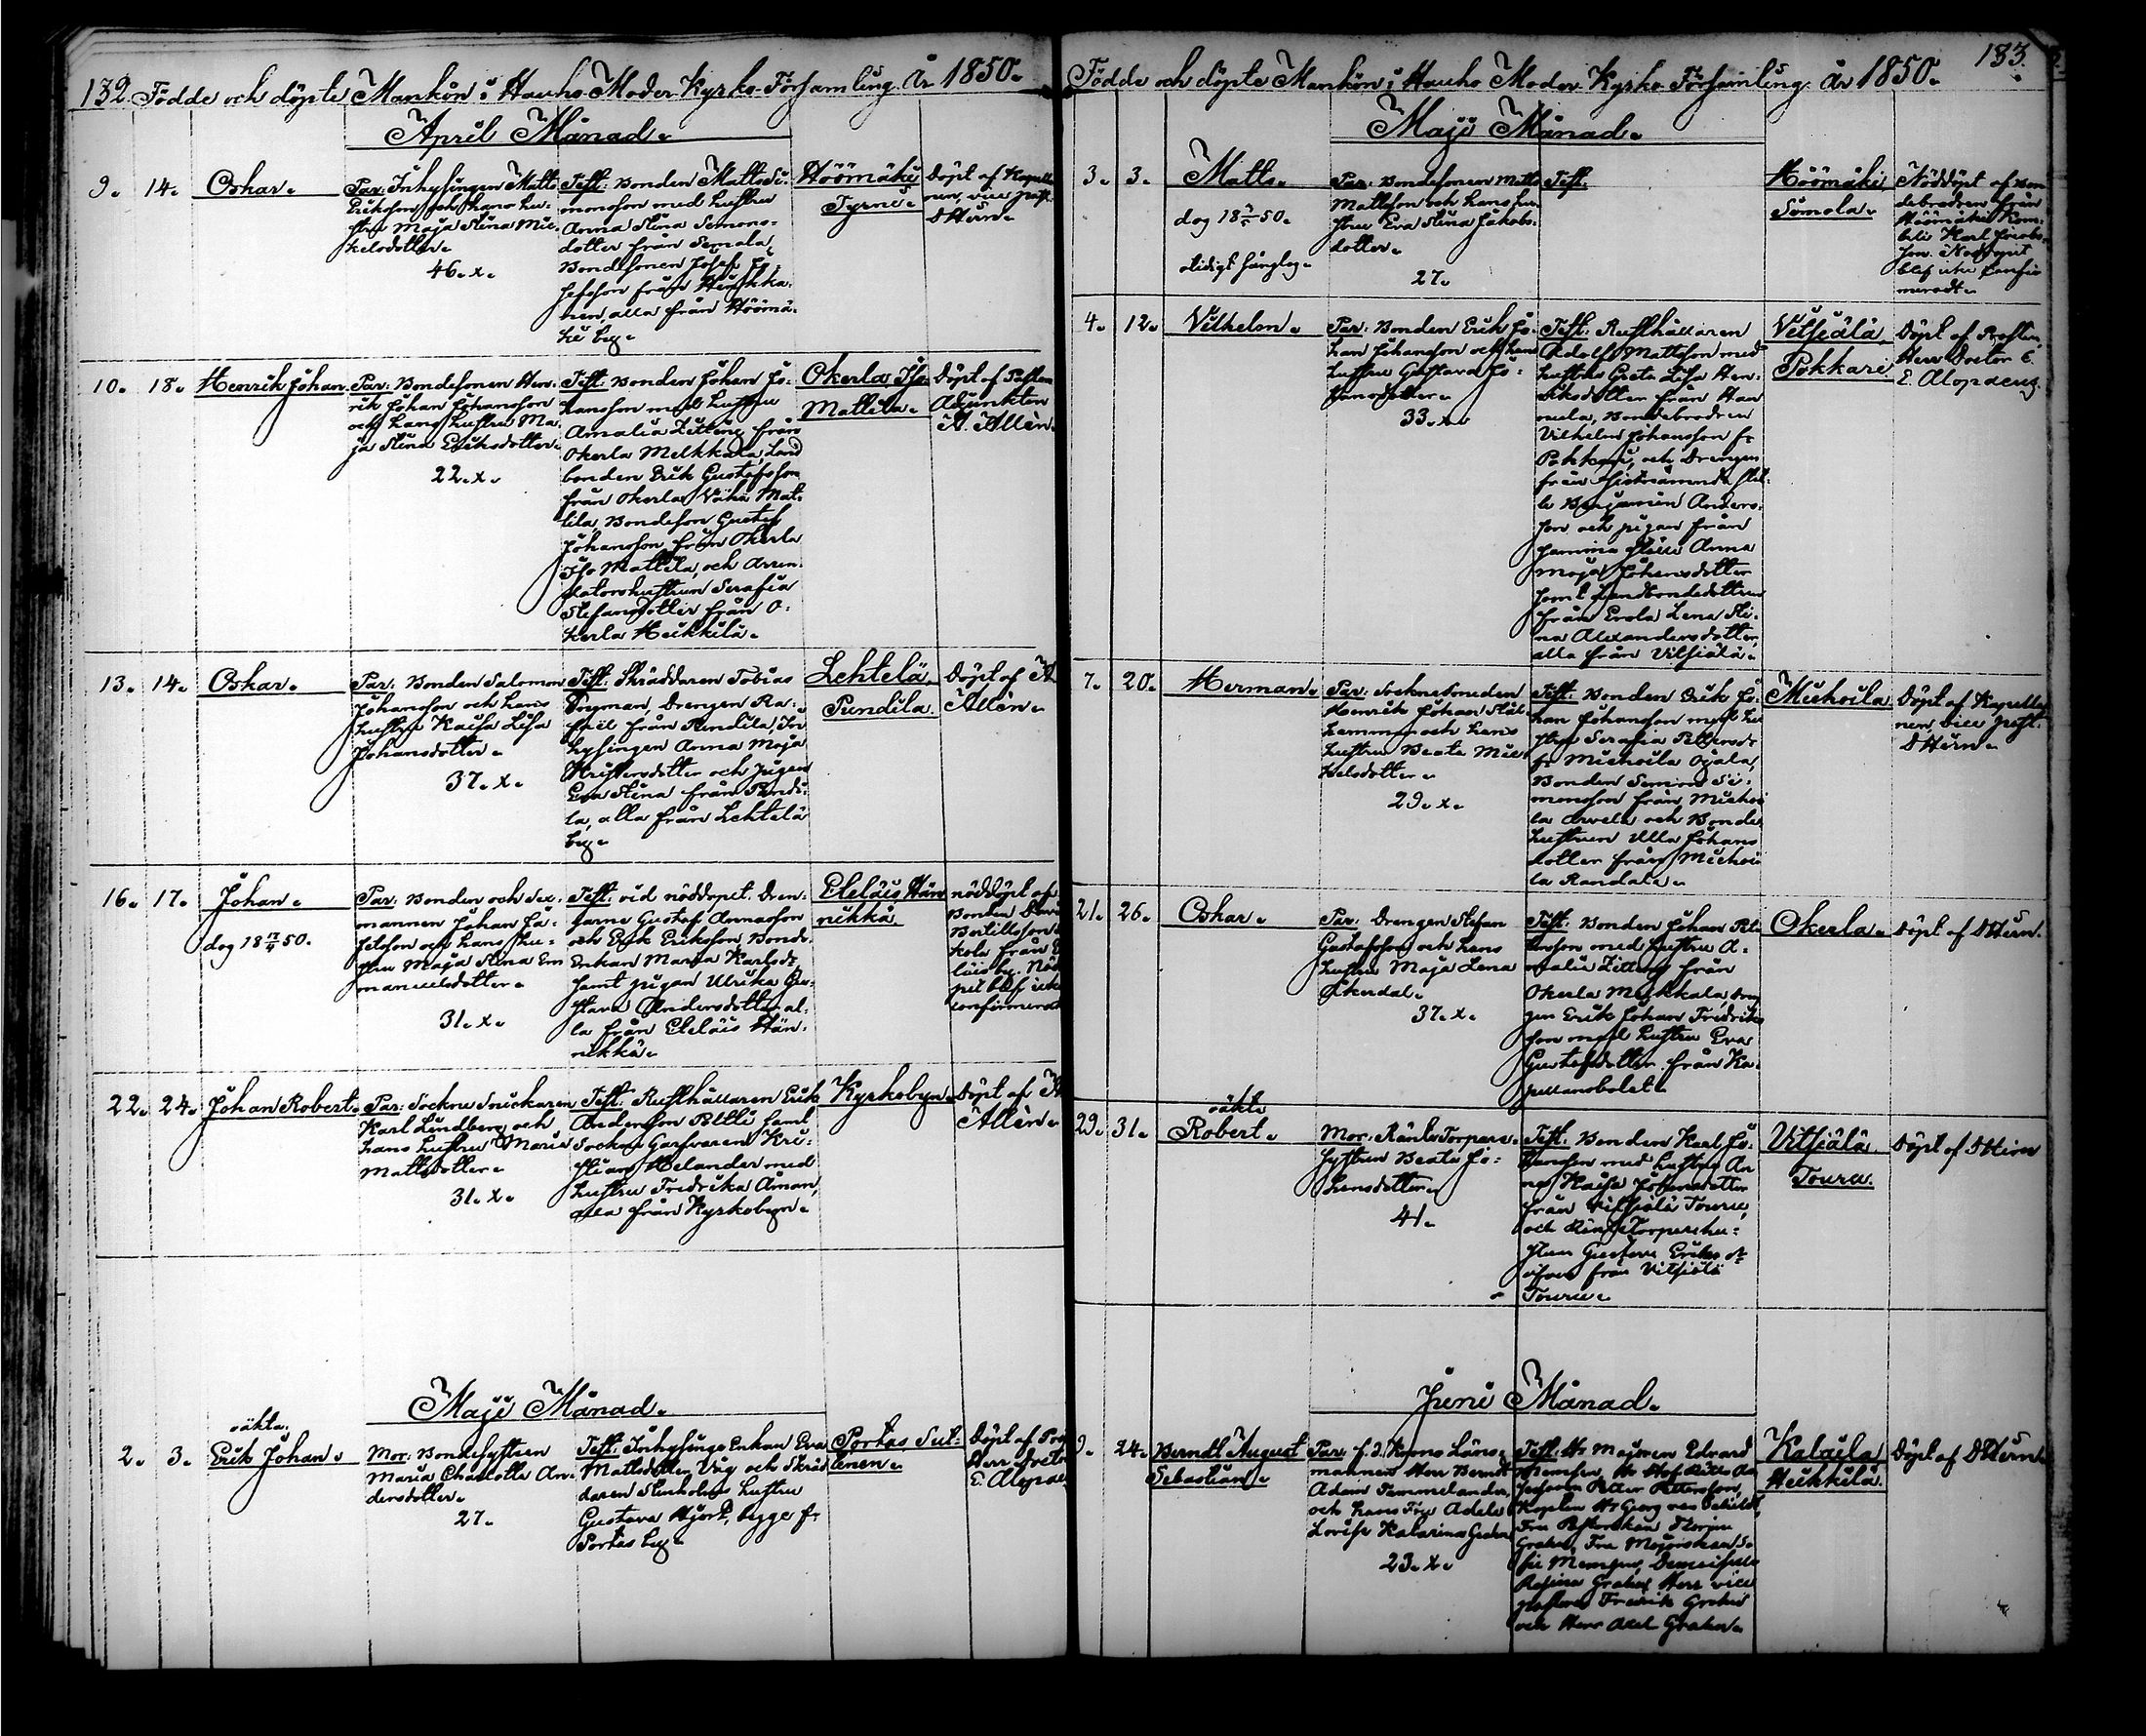 132. Födde och döpte Mankön i Hauho Moder Kyrko-Församling År 1850.
April Månad.
9. 14. Oskar.
Par: Inhysingen Matts
Eriksson och hans hu-
stru Maja Stina Mic-
kelsdotter.
46. x.
Test: Bonden Matts Si-
monsson med hustru
Anna Stina Simons-
dotter från Simola,
Bondesonen Josef Jo-
sefsson från
nen, alla från Höömä-
ki by.
Höömäki
Tyrni.
Döpt af Kapella-
nen, vice past.
DHirn.
10. 18. Henrik Johan.
Par: Bondesonen Hen-
rik Johan Johansson
och hans hustru Ma-
ja Stina Eriksdotter.
22. x.
Test: Bonden Johan Jo-
hansson med hustru
Amalia Zitting från
Okerla Melkkala, Land
bonden Erik Gustafsson
från Okerla Vähä Mat-
tila, Bondeson Gustaf
Johansson från Okerla
Iso Mattila, och Arren-
datorshustrun Serafia
Stefansdotter från O-
kerla Heikkilä.
Okerla Iso
Mattila.
Döpt af Pastors
Adjunkten
A. Allèn.
13. 14. Oskar.
Par: Bonden Salomon
Johansson och hans
hustru Kaisa Lisa
Johansdotter.
37. x.
Test: Skräddaren Tobias
Forsman, Drengen Ra-
fael från Pundila, In-
hysingen Anna Maja
Kristersdotter och pigan
Eva Stina från Pundi-
la, alla från Lehtelä
by.
Lehtelä,
Pundila.
Döpt af A
Allèn.
16. 17. Johan.
dog 18 17/4 50.
Par: Bonden och Sex-
mannen Johan Jo-
sefsson och hans hu-
stru Maja Stina Em
manuelsdotter.
31. x.
Test: vid nöddopet. Dren-
garne Gustaf Annasson
och Erik Eriksson Bonde-
Enkan Maria Karlsdr
samt pigan Ulrika Gu-
stava Andersdotter al-
la från Eteläis Hän-
nikkä.
Eteläis Hän
nikkä.
nöddöpt af
Bonden
Bertillsson
från E
läis by. Nöd
pet blef icke
confirmerad
22. 24. Johan Robert.
Par: Sockne Snickaren
Karl Lindberg och
hans hustru Maria
Mattsdotter.
31. x.
Test: Rusthållaren Erik
Andersson Peltti samt
Sockne Garfvaren Kri-
stian Helander med
hustru Fredrika Åman,
alla från Kyrkobyn.
Kyrkobyn.
Döpt af A
Allèn.
Maji Månad.
2. 3. oäkta.
Erik Johan.
Mor: Bondesystren
Maria Charlotta An-
dersdotter.
27.
Test: Inhysings Enkan Eva
Mattsdotter Väg och Skräd
daren Stenholms hustru
Gustava Hjort, begge fr.
Portas by.
Portas Sul-
Döpt af Pro
Herr Docto
E. Alopae
Födde och döpte Mankön i Hauho Moder-Kyrko-Församling År 1850. 133.
Maji Månad.
3. 3. Matts.
dog 18 50.
otidigt
Par: Bondesonen Matts
Mattsson och hans hu-
stru Eva Stina Jakobs-
dotter.
27.
Test.
Höömäki
Simola.
Nöddöpt af Bon
debrodren från
Höömäki
Karl Jacobs-
son. Nöddopet
blef icke confir
meradt.
4. 12. Vilhelm.
Par: Bonden Erik Jo-
han Johansson och hans
hustru Gustava Jo-
hansdotter.
33. x.
Test: Rusthållaren
Adolf Mattsson med
hustru Greta Lisa Hen-
riksdotter från Han
nula, Bondebrodren
Vilhelm Johansson fr
Pokkari, och Drengen
från sistnämnde stäl-
le Benjamin Anders-
son och pigan från
samma ställe Anna
Maja Johansdotter
samt Landbondedottren
från Erola Lena Sti-
na Alexandersdotter
alla från Vitsiälä.
Vitsiälä,
Pokkari.
Döpt af Prosten,
Herr Doctor E.
E. Alopaeus.
7. 20. Herman.
Par: Socknesmeden
Henrik Johan Stål-
hammar och hans
hustru Beata Mic-
kelsdotter.
29. x.
Test: Bonden Erik Jo-
han Johansson med hu
stru Serafia Pettersdr
fr Miehoila Ojala,
Bonden Simon Si-
monsson från Miehoi
la Arvela och Bonde
hustrun Ulla Johans
dotter från Miehoi
la Randala.
Miehoila.
Döpt af Kapella
nen, vice past.
DHirn.
21. 26. Oskar.
Par: Drengen Stefan
Gustafsson och hans
hustru Maja Lena
Åkerdal.
37. x.
Test: Bonden Johan
med hustru A-
malia Zitting från
Okerla Melkkala, Dren
gen Erik Johan Fredriks
son med hustru Eva
Gustafsdotter från Ka-
pellansbolet.
Okerla.
Döpt af DHirn.
29. 31. oäkta
Robert.
Mor: Torpare-
systren Beata Jo-
hansdotter.
41.
Test: Bonden Karl Jo-
hansson med hustru An
na Kaisa Johansdotter
från Vitsiälä Touru,
och Torparehu-
strun Gustava Eriksdr
från Vitsiälä
Touru.
Vitsiälä
Touru.
Döpt af DHirn
Juni Månad.
9. 24. Berndt August
Sebastian.
Par: f.d. Krono Läns-
mannen Herr Berndt
Adam Tammelander,
och hans Fru Adela
Lovisa Katarina Grahn
23. x.
Test: Hr Majoren Edvard
Hr Hof Rätts As
sessorn Petter Pettersson,
Kapten Hr Georg von
Fru
Grahn, Fru Majorskan So-
fie Demoiselle
Rosina Grahn, Herr vice
pastoren Fredrik Grahn
och Herr Axel Grahn.
Kalaila
Heikkilä.
Döpt af DHirn.